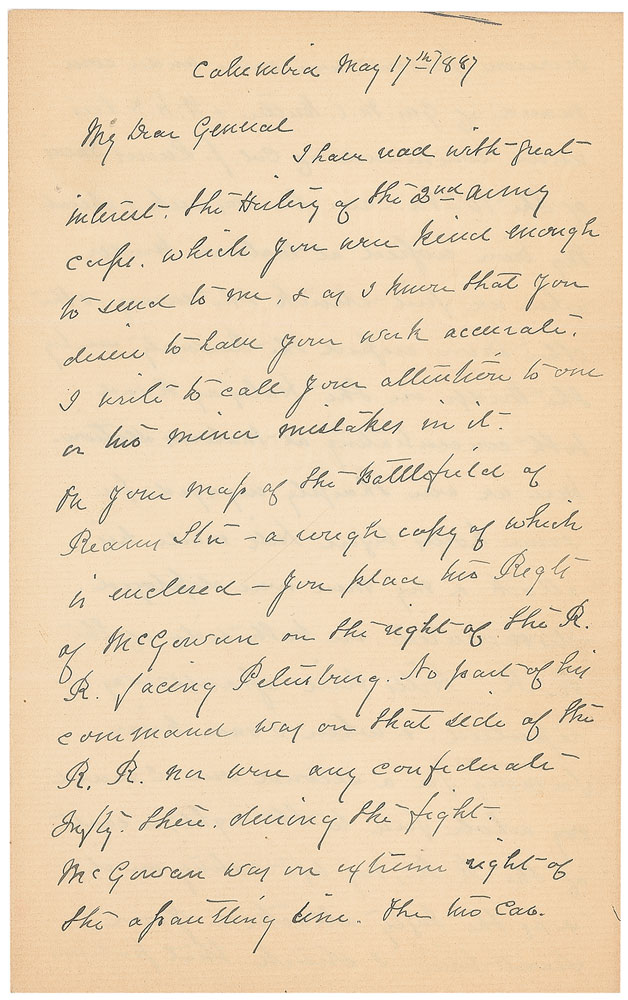 Columbia May 17th 1887
My Dear General
I have read with great
interest. the History of the 2nd Army
Corps. which you were kind enough
to send to me, & as I know that you
desire to have your work accurate.
I write to call your attention to one
or two minor mistakes in it.
On your map of the Battlefield of
Reams Stn - a rough copy of which
is enclosed - you place two Regts
of McGowan on the right of the R.
R. facing Petersburg. No part of his
command was on that side of the
R. R. nor were any confederate
Infty. there. during the fight.
McGowan was on extreme right of
the assaulting line. The two Cav.